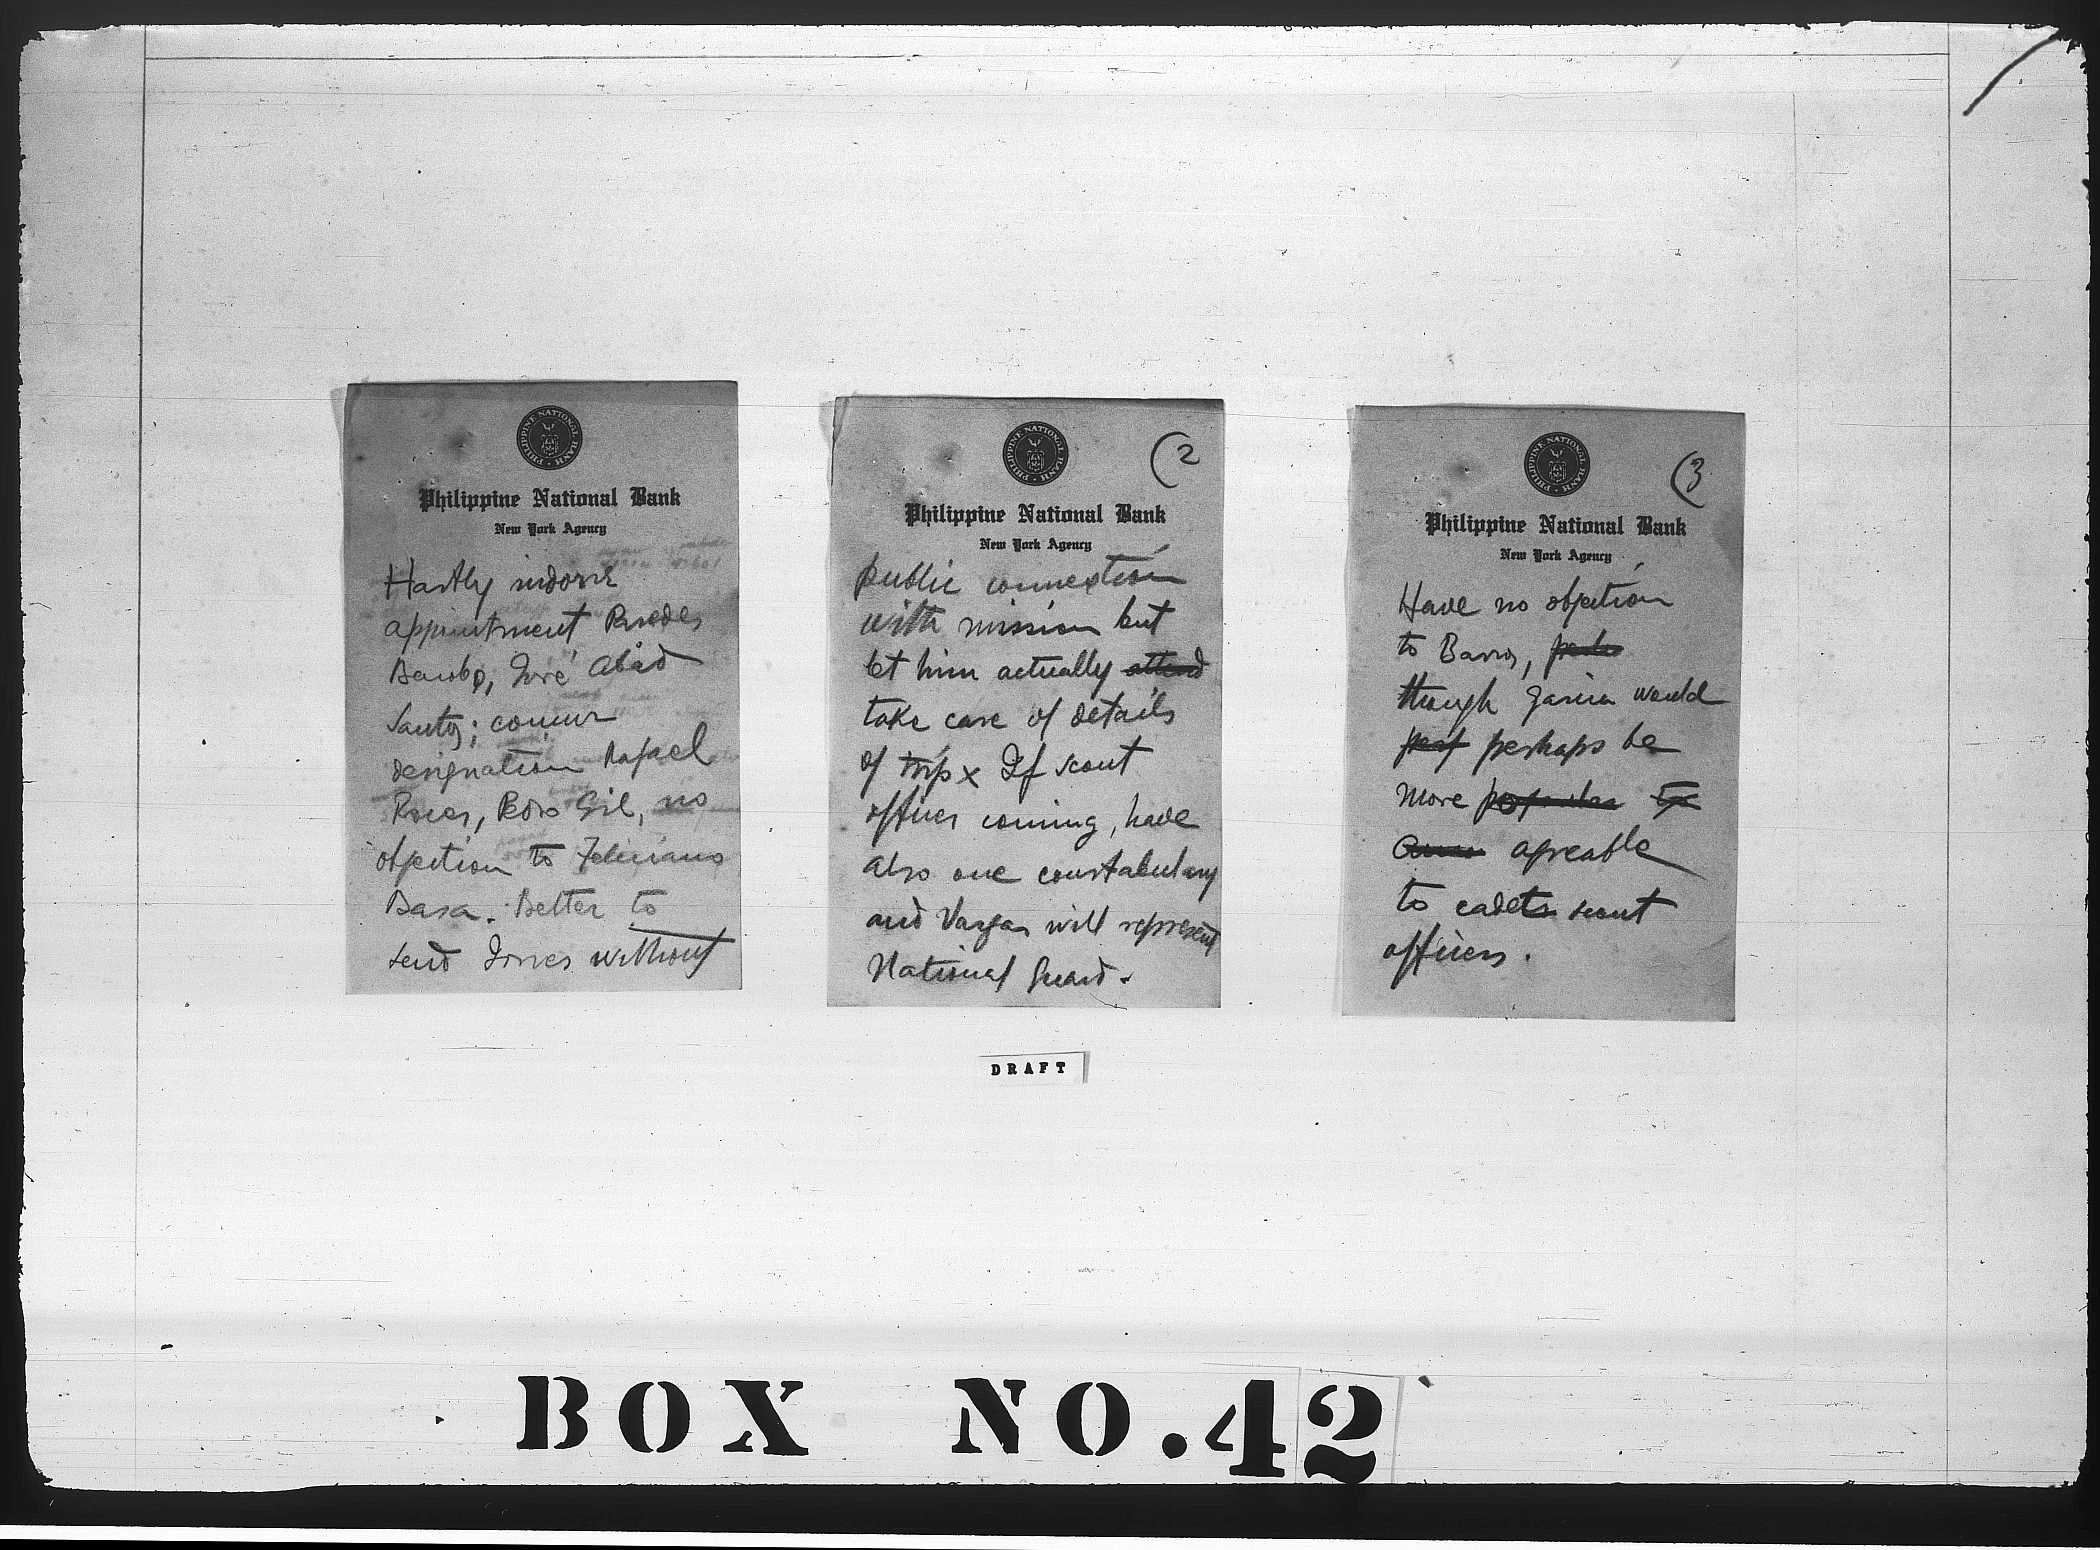 PHILIPPINE NATIONAL BANK
Philippine National Bank
New York Agency
Hartly indorse
appointment Paredes
José Abad
Santos; concur
designation Rafael
Roces, Pedro Gil, no
objection to Feliciano
Basa. Better to
send Torres without
(2
PHILIPPINE NATIONAL BANK
Philippine National Bank
New York Agency
public connextion
with mission but
let him actually attend
take care of details
of trip x If scout
officer coming, have
also one constabulary
and Vargas will represent
National Guard.
(3
PHILIPPINE NATIONAL BANK
Philippine National Bank
New York Agency
Have no objection
to
though would
perhaps be
more
agreable
to cadets scout
officers.
DRAFT
BOX NO. 42